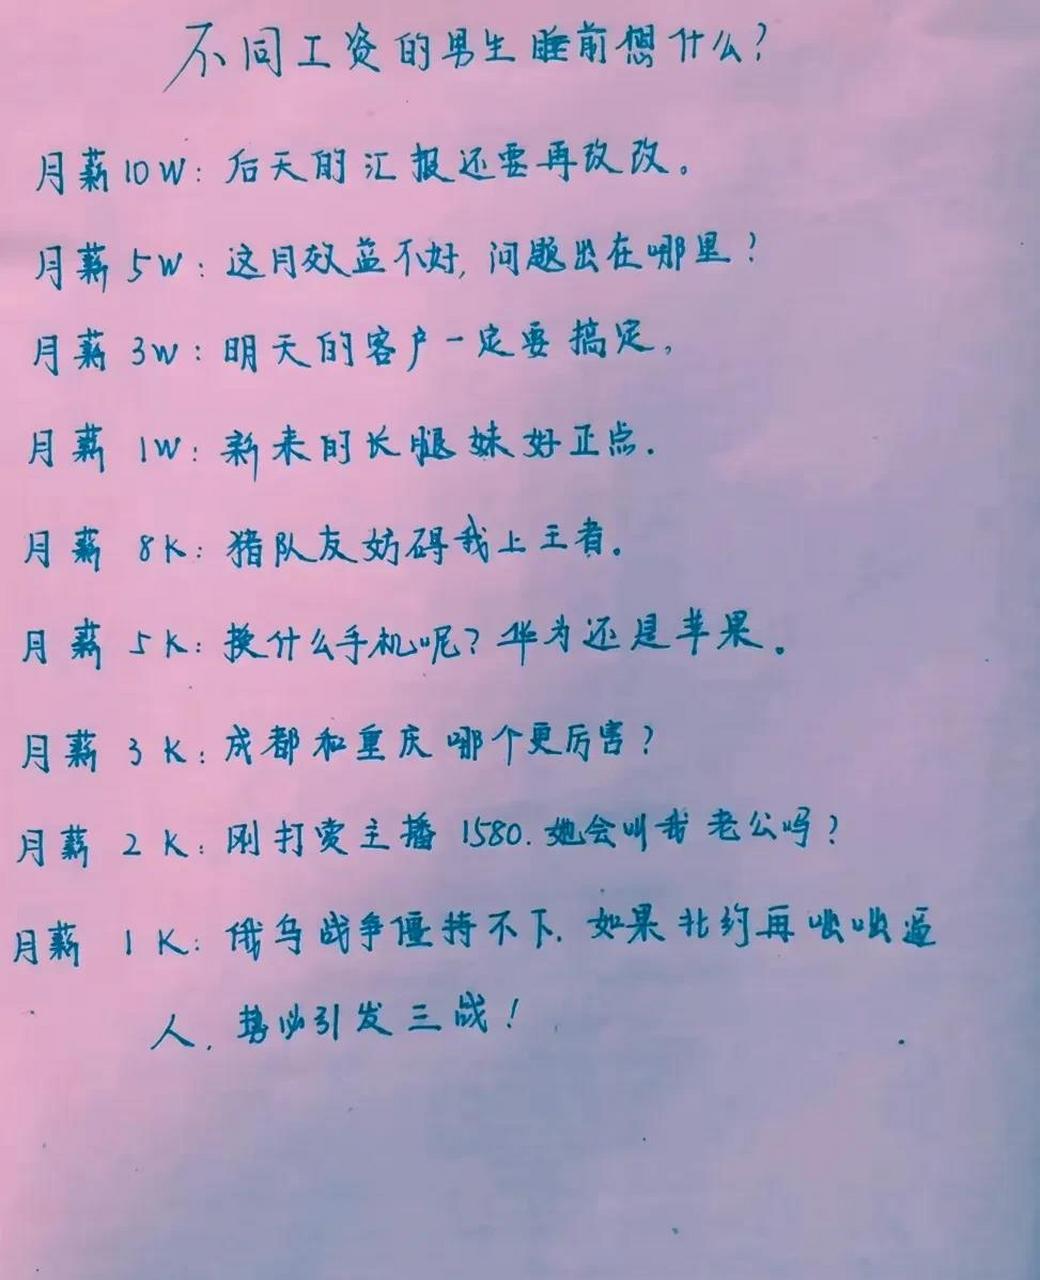 不同工资的男生睡前想什么?
月薪10W: 后天的汇报还要再改改。
月薪5W: 这月效益不好, 问题出在哪里?
月薪3W: 明天的客户一定要搞定,
月薪1W: 新来的长腿妹好正点.
月薪8K: 猪队友妨碍我上王者。
月薪5K: 换什么手机呢? 华为还是苹果。
月薪3K: 成都和重庆哪个更厉害?
月薪2K: 刚打赏主播1580. 她会叫我老公吗?
月薪1K: 俄乌战争僵持不下. 如果北约再咄咄逼
人, 势必引发三战!